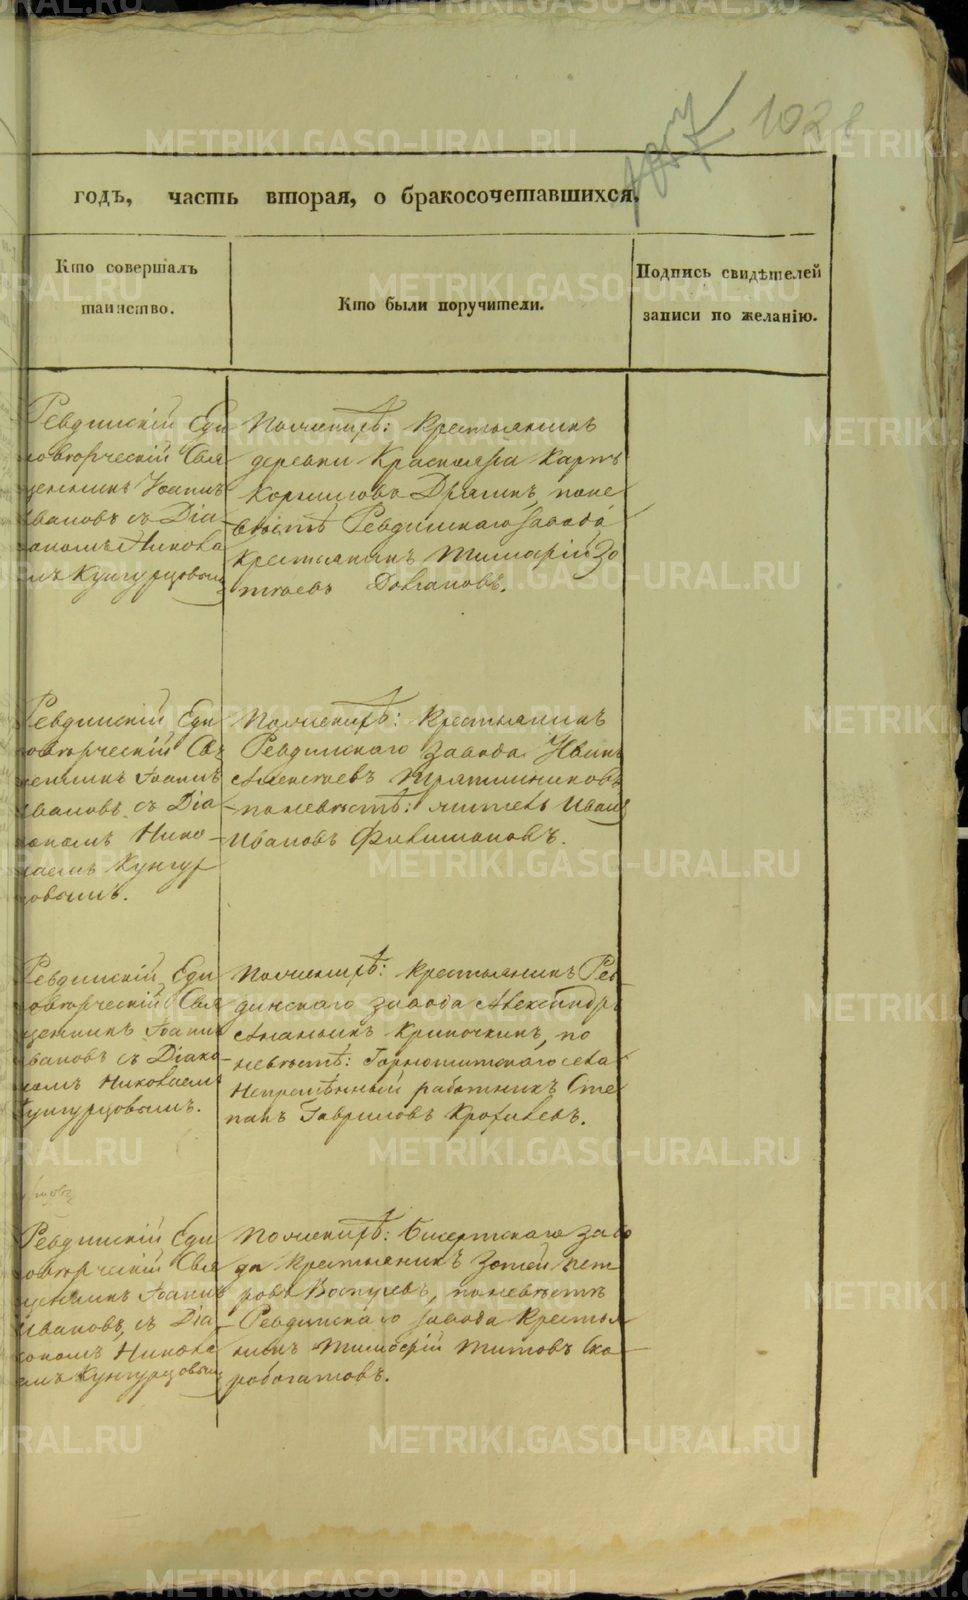 1021
годъ, часть вторая, о бракосочетавшихся.
Кто совершалъ
таинство.
Кто были поручители.
Подпись свидѣтелей
записи по желанію.
Ревдинскій Еди
новѣрческій Свя
щенникъ Іоаннъ
Ивановъ съ Діа-
кономъ Никола
емъ Кунгурцовымъ
По женихѣ: Крестьянинъ
деревни Краснояра Карпъ
Дрягинъ, по не
вѣстѣ Ревдинскаго завода
крестьянинъ Тимофій Зо
тѣевъ
Ревдинскій Еди
новѣрческій Св
щенникъ Іоаннъ
Ивановъ съ Діа
кономъ Нико-
лаемъ Кунгур
цовымъ.
По женихѣ: Крестьянинъ
Ревдинскаго завода Иванъ
Алексѣевъ
по невѣстѣ: житель Иванъ
Ивановъ Филимоновъ.
Ревдинскій Еди
новѣрческій Свя
щенникъ Іоаннъ
Ивановъ съ Діако-
номъ Николаемъ
Кунгурцовымъ.
По женихѣ: крестьянинъ Рев
динскаго завода Александръ
Ананьинъ, по
невѣстѣ: Горнощитскаго села
Непремѣнный работникъ Сте
панъ Гавриловъ
Ревдинскій Еди
новѣрческій Свя
щенникъ Іоаннъ
Ивановъ, съ Діа
кономъ Никола
емъ Кунгурцовымъ
По женихѣ: Бисертскаго заво
да крестьянинъ Зотей Пет
ровъ, по невѣстѣ
Ревдинскаго завода Крестья
нинъ Тимофій Титовъ Ско
робогатовъ.
METRIKI.GASO-URAL.RU